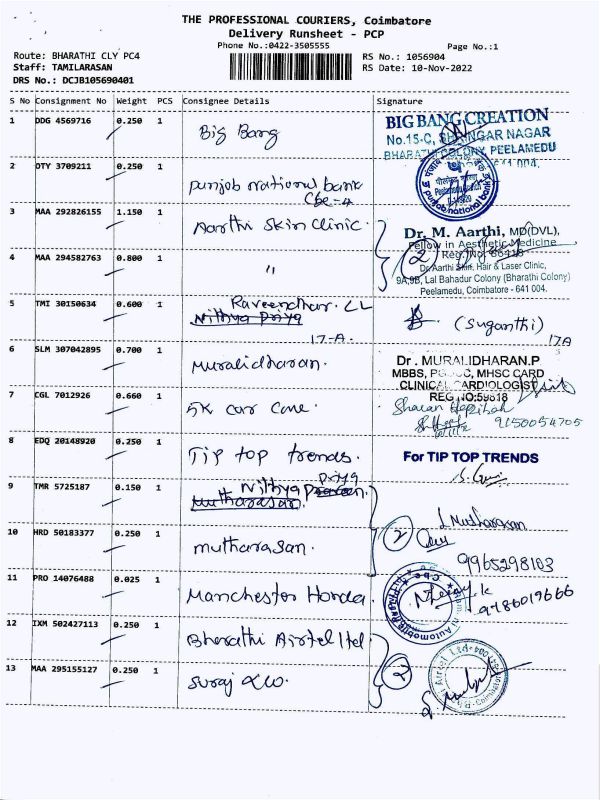 THE PROFESSIONAL COURIERS, Coimbatore
Delivery Runsheet - PCP
Phone No.:0422-3505555
Page No.:1
Route: BHARATHI CLY PC4
Staff: TAMILARASAN
DRS No.: DCJB105690401
RS No.: 1056904
RS Date: 10-Nov-2022
S No Consignment No Weight PCS Consignee Details Signature
1 DDG 4569716 0.250 1 Big Bang
BIG BANG CREATION
No.15-C, SHRINGAR NAGAR
BHARATHI COLONY, PEELAMEDU
641 004.
2 DTY 3709211 0.250 1 Punjab national bank
Cbe-4
punjab national bank
3 MAA 292826155 1.150 1 Aarthi Skin Clinic.
4 MAA 294582763 0.800 1 "
2
Dr. M. Aarthi, MD(DVL),
Fellow in Aesthetic Medicine
Reg.No. 86418
Dr.Aarthi Skin, Hair & Laser Clinic,
9A,9B, Lal Bahadur Colony (Bharathi Colony)
Peelamedu, Coimbatore - 641 004.
5 TMI 30150634 0.600 1 Raveendhar. CL
Nithya Priya
17-A.
(Suganthi)
17A
6 SLM 307042895 0.700 1 Muralidharan.
Dr . MURALIDHARAN.P
MBBS, MHSC CARD
CLINICAL CARDIOLOGIST
REG NO:59818
7 CGL 7012926 0.660 1 5K car care.
Sharan
9150054705
8 EDQ 20148920 0.250 1 Tip top trends.
For TIP TOP TRENDS
9 TMR 5725187 0.150 1 Nithya Priya
Mutharasan.
10 HRD 50183377 0.250 1 mutharasan.
2
Mutharasan
9965298103
11 PRO 14076488 0.025 1 Manchester Honda.
9786019666
12 IXM 502427113 0.250 1 Bharathi Airtel ltd
13 MAA 295155127 0.250 1 Suraj
2